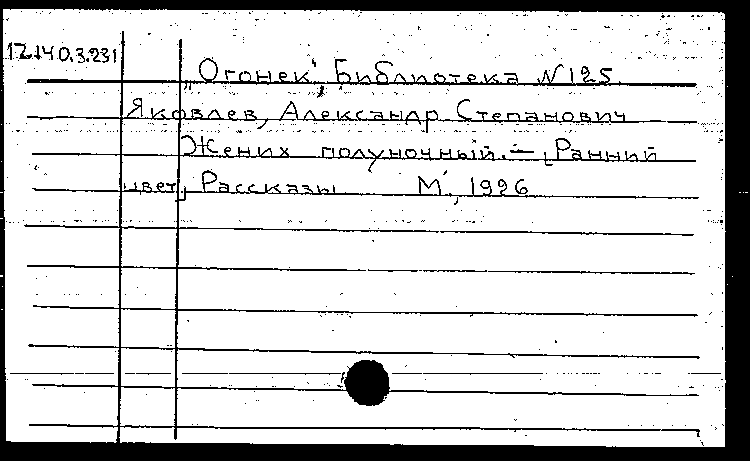 17.140.3.231
„Огонек“, Библиотека N 125.
Яковлев, Александр Степанович
Жених полуночный. — [Ранний
цвет], Рассказы М., 1926